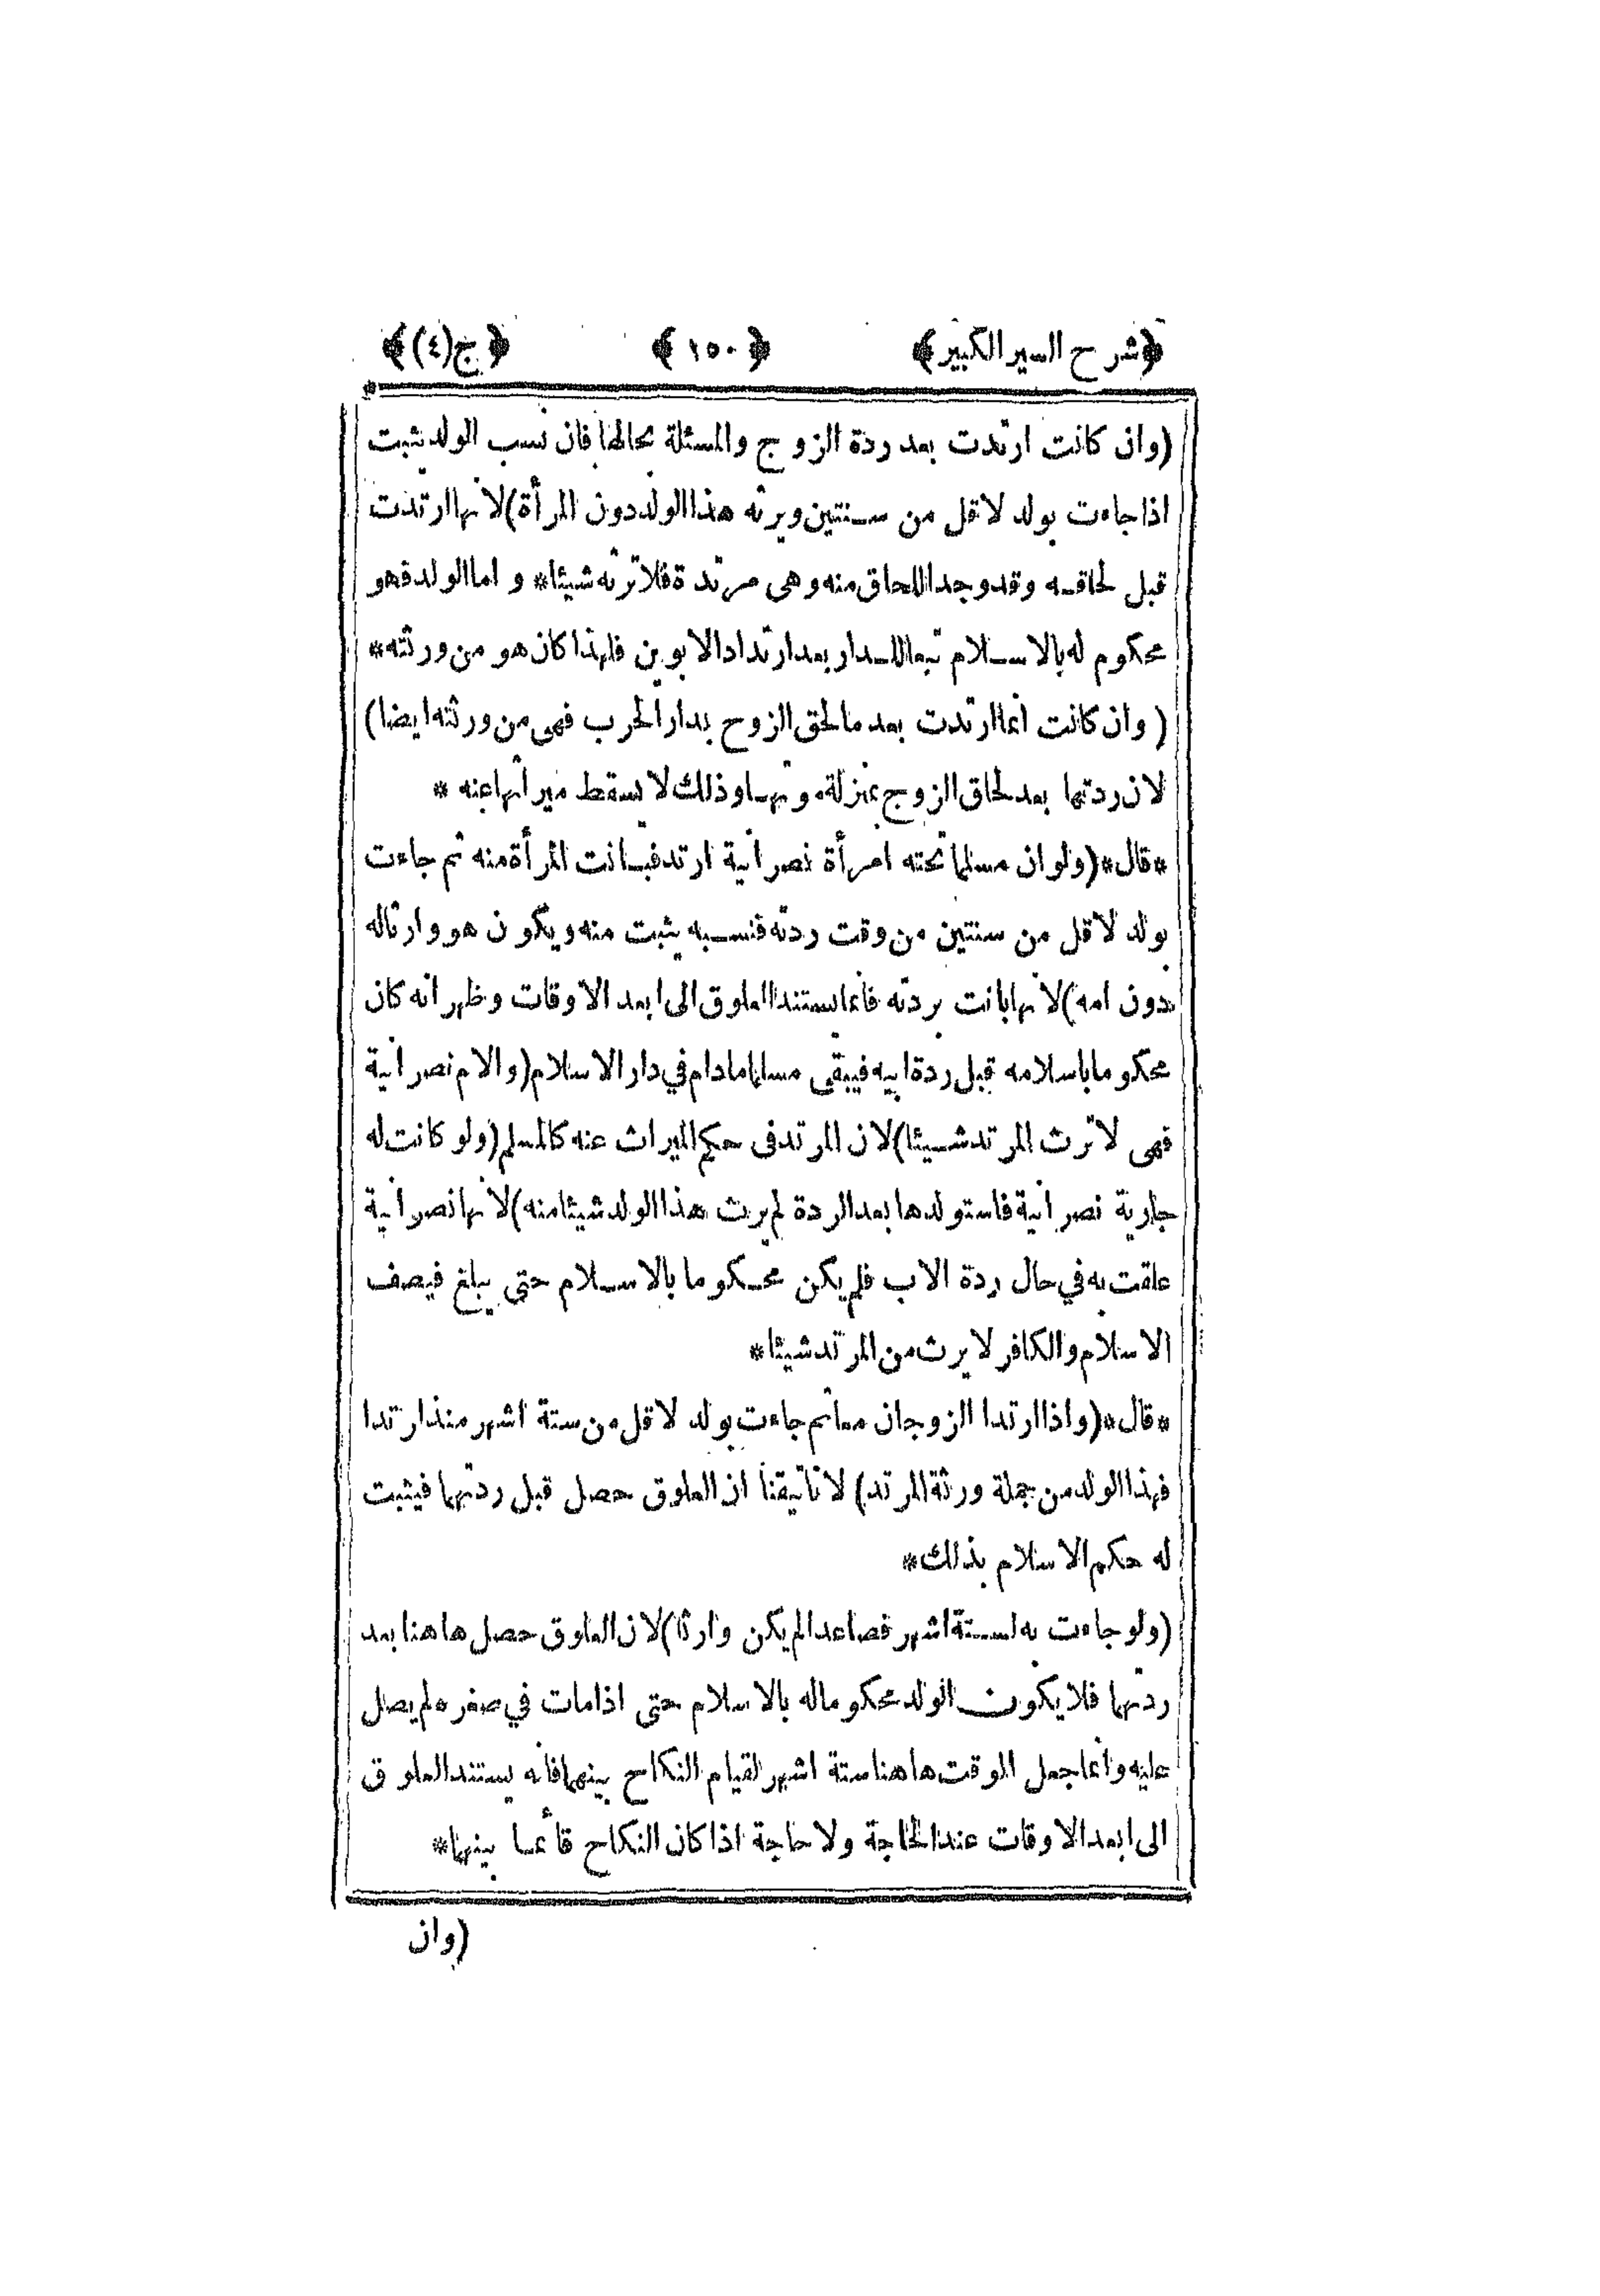 ﴿شرح السير الكبير﴾ ﴿١٥٠﴾ ﴿ج(٤)﴾
(وان كانت ارتدت بعد ردة الزوج والمسئلة بحالها فان نسب الولد يثبت
اذا جاءت بولد لاقل من سنتين ويرثه هذا الولد دون المرأة) لانها ارتدت
قبل لحاقه وقد وجد اللحاق منه وهى مرتدة فلا ترثه شيئا* و اما الولد فهو
محكوم له بالاسلام تبعا للدار بعد ارتداد الابوين فلهذا كان هو من ورثته*
( وان كانت انما ارتدت بعد ما لحق الزوح بدار الحرب فهى من ورثته ايضا)
لان ردتها بعد لحاق الزوج بمنزلة موتها وذلك لا يسقط ميراثها عنه *
*قال* (ولو ان مسلما تحته امرأة نصرانية ارتد فبانت المرأة منه ثم جاءت
بولد لاقل من سنتين من وقت ردته فنسبه يثبت منه ويكون هو وارثا له
دون امه) لانها بانت بردته فانما يستند العلوق الى ابعد الاوقات وظهر انه كان
محكوما باسلامه قبل ردة ابيه فيبقى مسلما مادام في دار الاسلام (والام نصرانية
فهى لا ترث المرتد شيئا) لان المرتد فى حكم الميراث عنه كالمسلم (ولو كانت له
جارية نصرانية فاستولدها بعد الردة لم يرث هذا الولد شيئا منه) لانها نصرانية
علقت به في حال ردة الاب فلم يكن محكوما بالاسلام حتى يبلغ فيصف
الاسلام والكافر لا يرث من المرتد شيئا*
*قال* (واذا ارتدا الزوجان معا ثم جاءت بولد لاقل من ستة اشهر منذ ارتدا
فهذا الولد من جملة ورثة المرتد) لانا تيقنا ان العلوق حصل قبل ردتهما فيثبت
له حكم الاسلام بذلك*
(ولو جاءت به لستة اشهر فصاعدا لم يكن وارثا) لان العلوق حصل هاهنا بعد
ردتهما فلا يكون الولد محكوما له بالاسلام حتى اذا مات في صغره لم يصل
عليه وانما جعل الوقت هاهنا ستة اشهر لقيام النكاح بينهما فانه يستند العلوق
الى ابعد الاوقات عند الحاجة ولا حاجة اذا كان النكاح قائما بينهما*
(وان